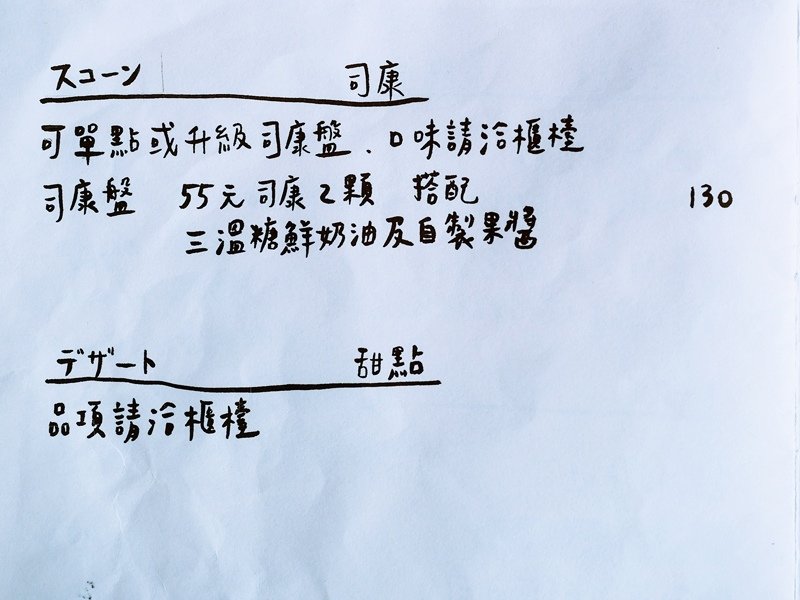 スコーン 司康
可單點或升級司康盤.口味請洽櫃檯
司康盤 55元司康2顆 搭配 130
三溫糖鮮奶油及自製果醬
デザート 甜點
品項請洽櫃檯